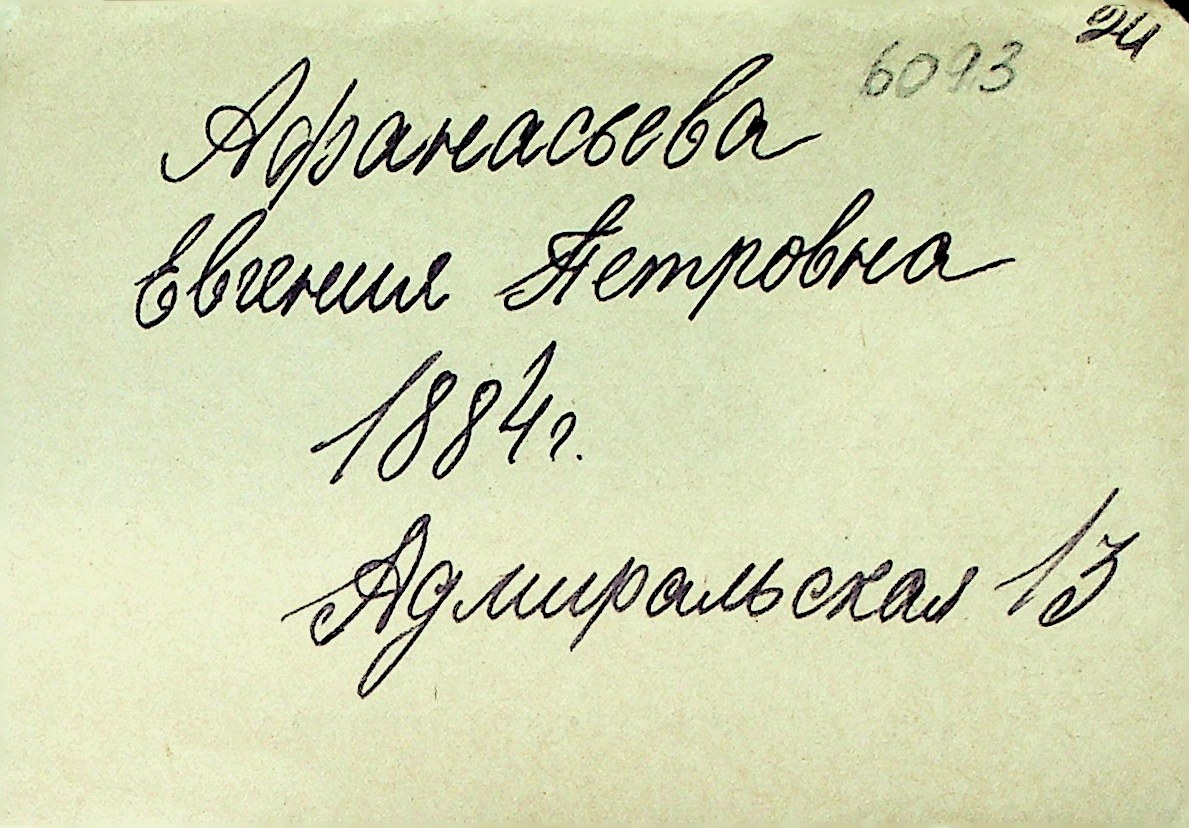 24
6093
Афанасьева
Евгения Петровна
1884г.
Адмиральская 13